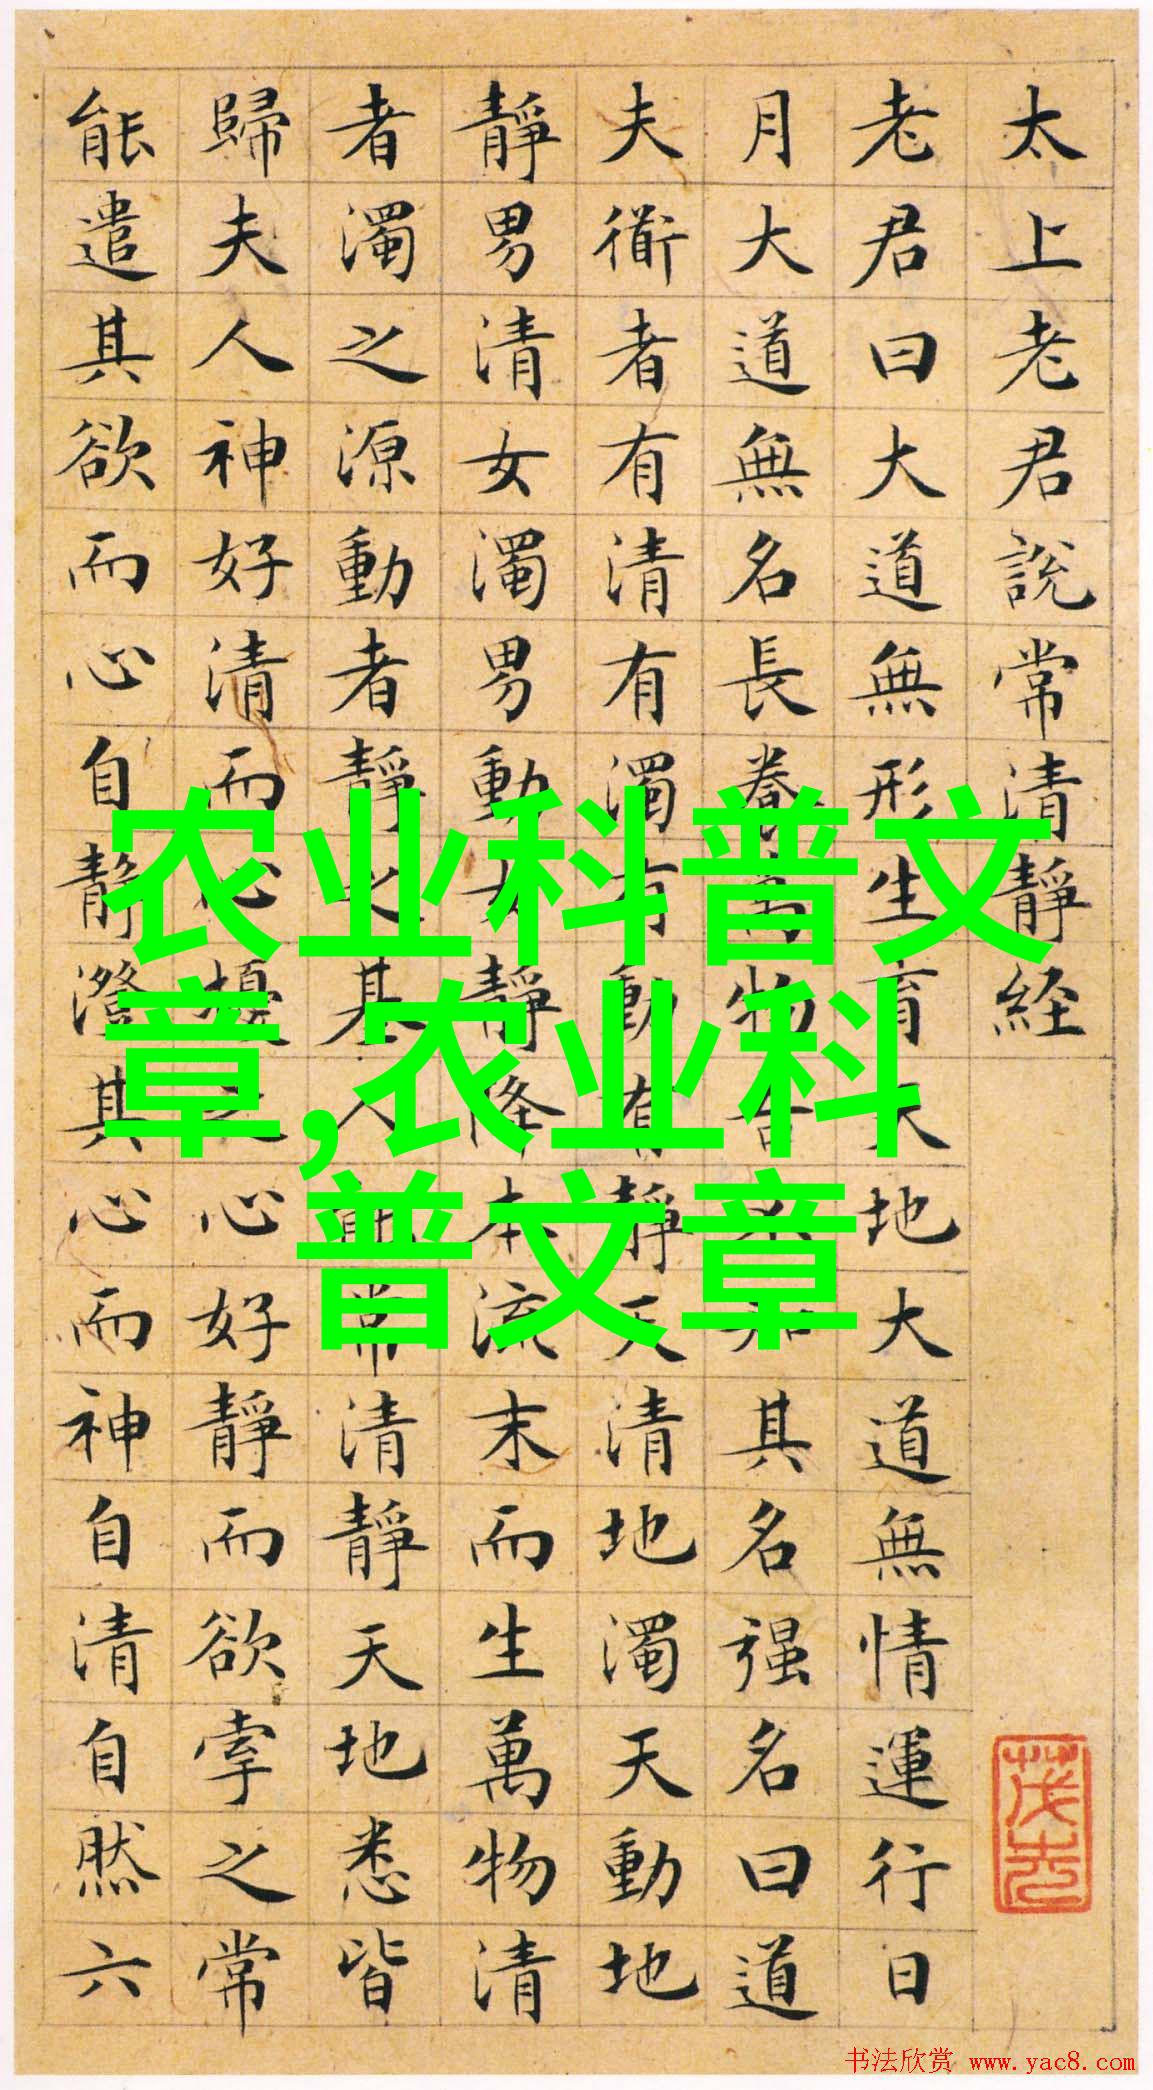 太上老君說常清靜経
老君曰大道無形生育天地大道無情運行日
月大道無名長養萬物吾不知其名强名曰道
夫衜者有清有濁有動有靜天清地濁天動地
靜男清女濁男動女靜降本流末而生萬物清
者濁之源動者靜之基人能常清靜天地悉皆
歸夫人神好清而心擾之心好靜而欲牽之常
能遣其欲而心自靜澄其心而神自清自然六
农业科普文
章,农业科
普文章
书法欣赏 www.yac8.com